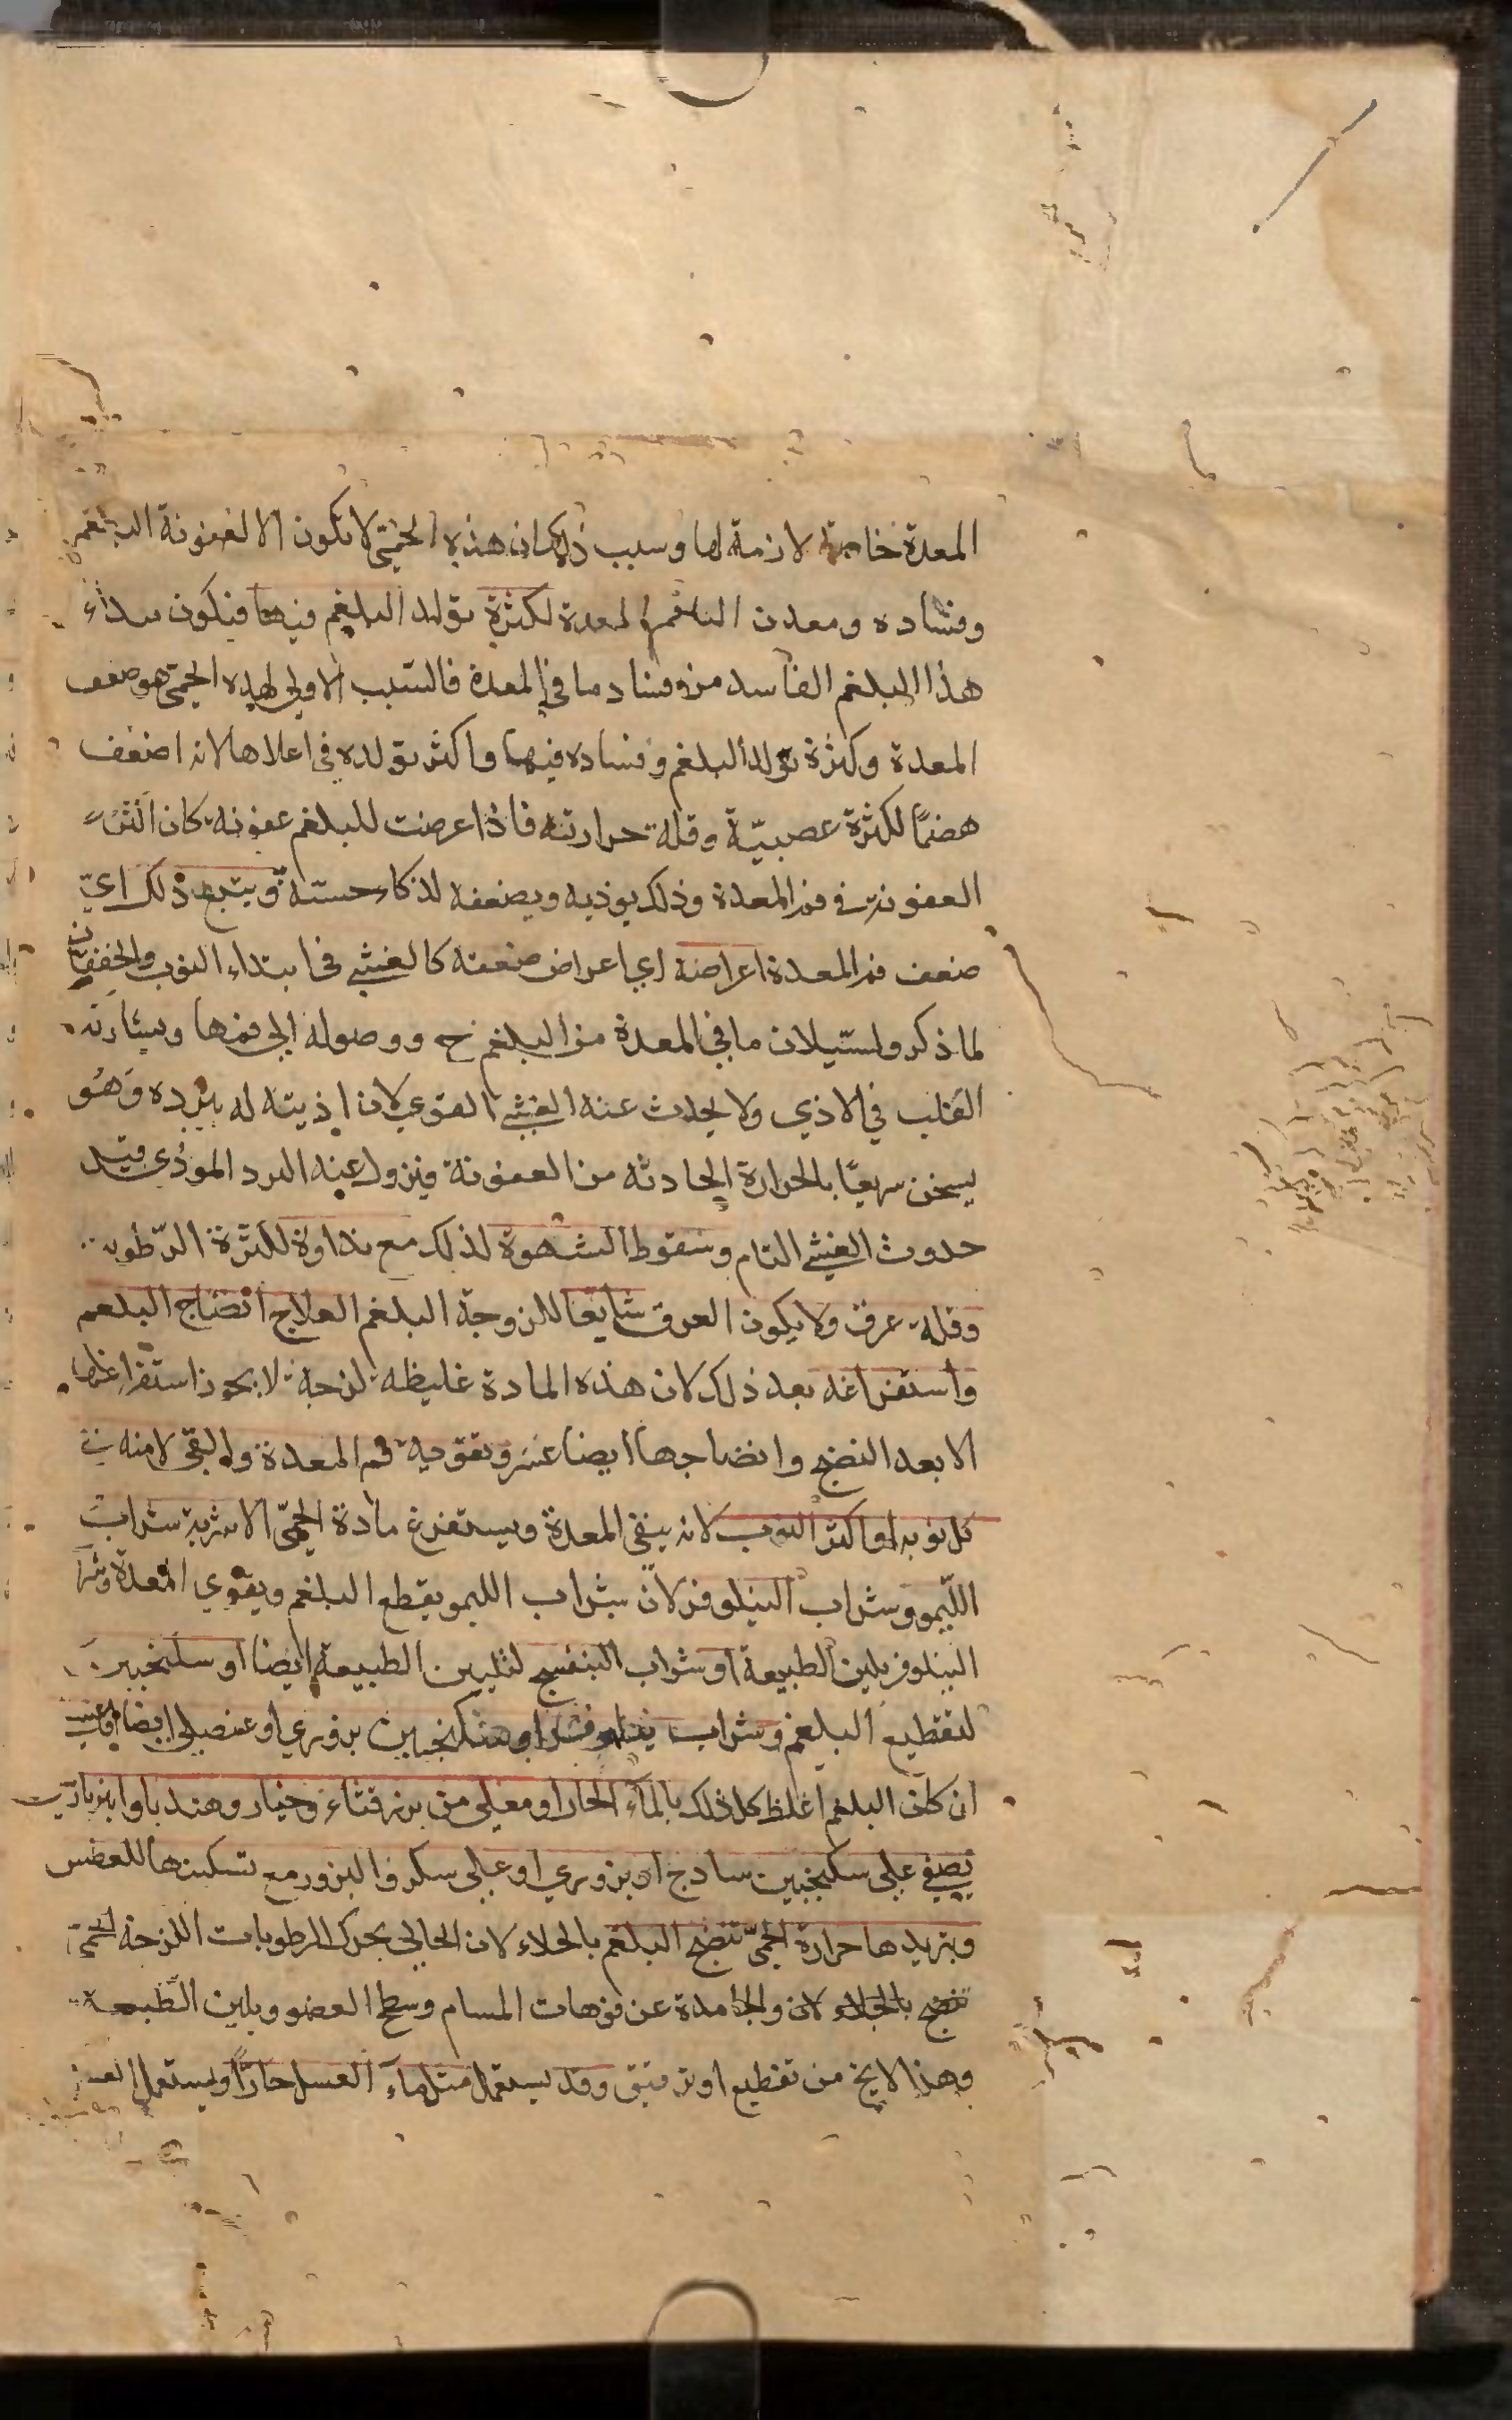 المعدة خاصة لازمة لها وسبب ذلك ان هذه الحمى لا تكون الا لعفونة البلغم
وفساده ومعدن البلغم المعدة لكثرة تولد البلغم فيها فيكون مبداء
هذا البلغم الفاسد من فساد ما في المعدة فالسبب الاولي لهذه الحمى هو ضعف
المعدة وكثرة تولد البلغم وفساده فيها واكثر تولده في اعلاها لانه اضعف
هضمًا لكثرة عصبيّة وقلة حرارته فاذا عرضت للبلغم عفونة كان اكثر
العفونة في فم المعدة وذلك يوذيه ويضعفه لذكاء حسته ويتبع ذلك اي
ضعف فم المعدة اعراضه اي اعراض ضعفه كالغشي في ابتداء النوب والخفقان
لما ذكر ولسيلان ما في المعدة من البلغم ح ووصوله الى فمها ويشاركه
القلب في الاذي ولا يحدث عنه الغشي القوي لان اذيته له ببرده وهو
يسخن سريعًا بالحرارة الحادثه من العفونة فيزول عنه البرد الموذي قبل
حدوث الغشي التام وسقوط الشهوة لذلك مع نداوة لكثرة الرطوبه
وقلة عرق ولا يكون العرق شايعا للزوجة البلغم العلاج انضاج البلغم
واستفراغه بعد ذلك لان هذه المادة غليظه لزجة لا يجوز استفراغها
الا بعد النضج وانضاجها ايضا عسر وتقوية فم المعدة والقي لا منه في
كل نوبه او اكثر النوب لانه ينقي المعدة ويستفرغ مادة الحمّى الاشربة شراب
الليمو وشراب النيلوفر لان شراب الليمو يقطع البلغم ويقوي المعدة وشرا
النيلوفر يلين الطبيعة او شراب البنفسج لتليين الطبيعة ايضا او سكنجبين
لتقطيع البلغم وشراب نيلوفر او سكنجبين بزوري او عنصلي ايضا
ان كان البلغم اغلظ كل ذلك بالماء الحار او مغلي من بزر قثاء وخيار وهندبا وانبرباريس
يصفي على سكنجبين سادج او بزوري او على سكر والبزور مع تسكينها للعطش
وتبريدها حرارة الحمّى تنضج البلغم بالجلاء لان الجالي يحرك الرطوبات اللزجة الحمى
تنضج بالجلاء لان والجامدة عن فوهات المسام وسطح العضو ويلين الطبيعة
وهذا لا يخ من تقطيع او ترقيق وقد يستعمل مثل ماء العسل حارًا ويستعمل